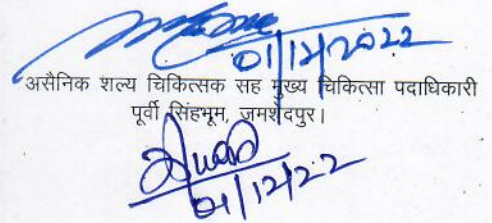 01/12/2022
असैनिक शल्य चिकित्सक सह मुख्य चिकित्सा पदाधिकारी
पूर्वी सिंहभूम, जमशेदपुर।
01/12/22